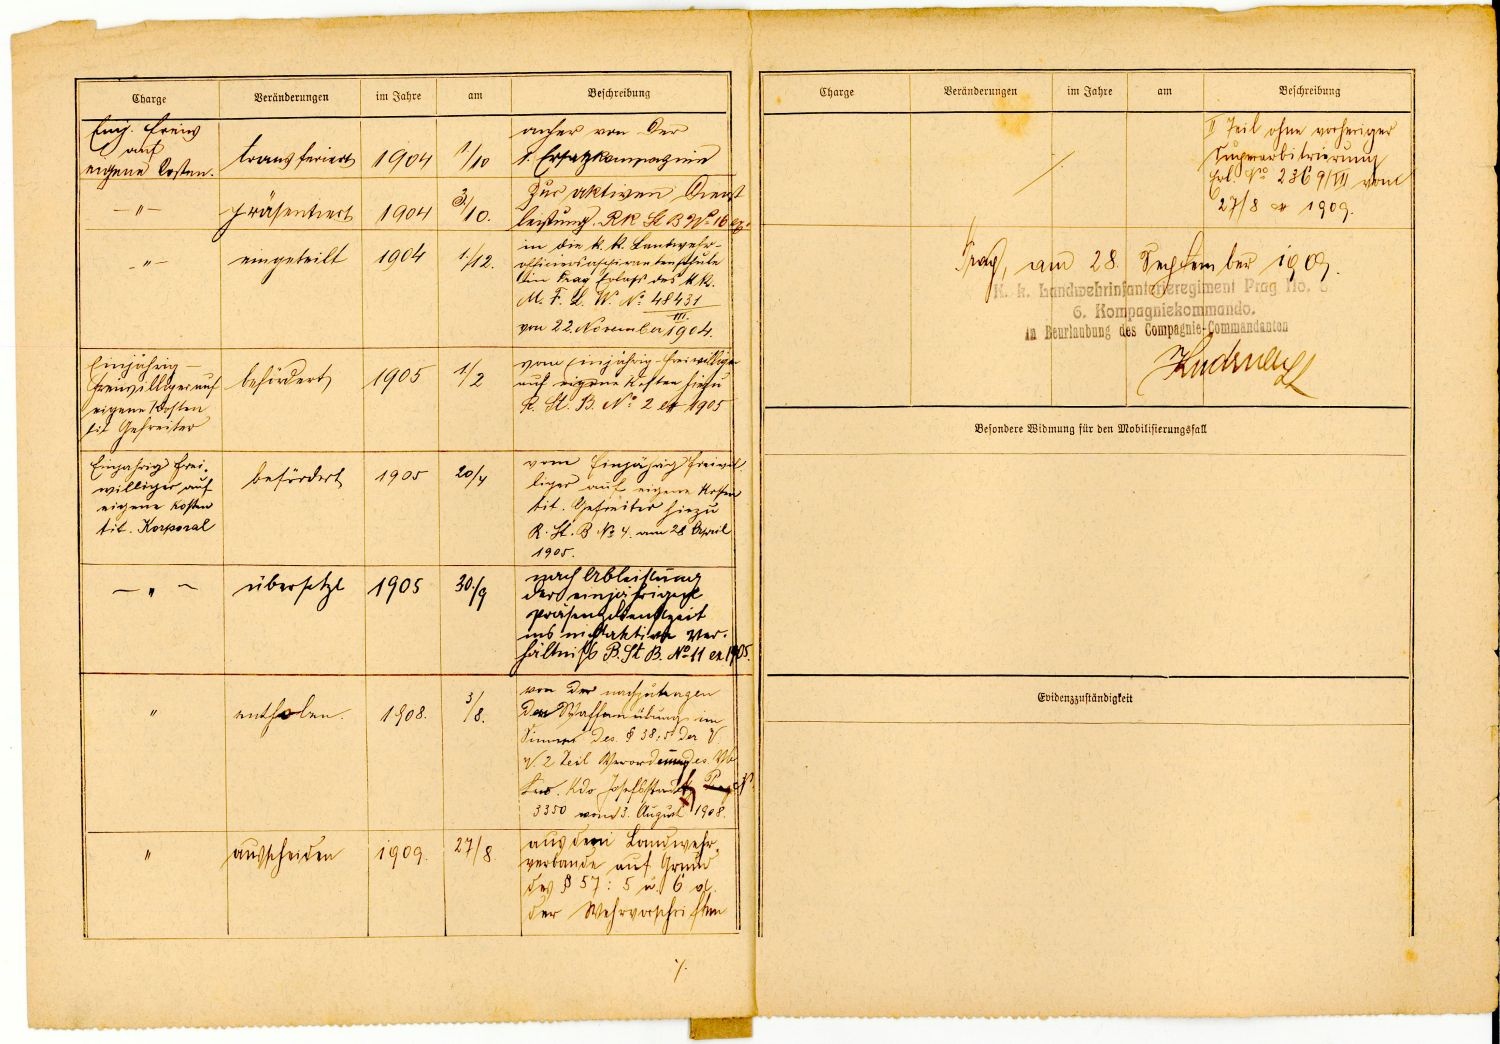 Charge Veränderungen im Jahre am Beschreibung
Einj. Freiw
auf
eigene Kosten.
transferiert 1904 1/10
anher von der
1. Ersatzkompagnie
—"— präsentiert 1904 3/10.
Zur aktiven Dienst
leistung. R St B No 16
—"— eingeteilt 1904 1./12.
in die k. k. Landwehr-
offiziersaspirantenschule
in Prag Erlass des k.k.
M. F. L. V. No 48431
III.
von 22. November 1904.
Einjährig-
freiwilliger auf
eigene Kosten
tit Gefreiter
befördert 1905 1/2
vom Einjährig-Freiwilligen
auf eigene Kosten hiezu
R. St. B. No 2 ex 1905
Einjährig Frei-
williger auf
eigene Kosten
tit. Korporal
befördert 1905 20/4
vom Einjährig Freiwil-
liger auf eigene Kosten
tit. Gefreiter hiezu
R. St. B No 4. am 28 April
1905.
— " — übersetzt 1905 30./9
nach Ableistung
der einjährigen
Präsenzdienstzeit
ins nichtaktive Ver-
hältniss B. St B. No 11 ex 1905.
" enthoben. 1908. 3/8.
von der nachzutragen
den Waffenübung im
Sinne des § 38,5 der
W. V. 2 Teil Verordnung des
Kdo Josefstadt
3350 vom 3. August 1908.
" ausscheiden 1909. 27/8.
aus dem Landwehr-
verbande auf Grund
des § 57: 5 u. 6
der Wehrvorschriften
·/.
Charge Veränderungen im Jahre am Beschreibung
·/.
II Teil ohne vorheriger
Superarbitrierung
Erl. No 2369/III vom
27/8 1909.
Prag, am 28. September 1909.
K. k. Landwehrinfanterieregiment Prag No. 8
6. Kompagniekommando.
in Beurlaubung des Compagnie-Commandanten
Besondere Widmung für den Mobilisierungsfall
Evidenzzuständigkeit